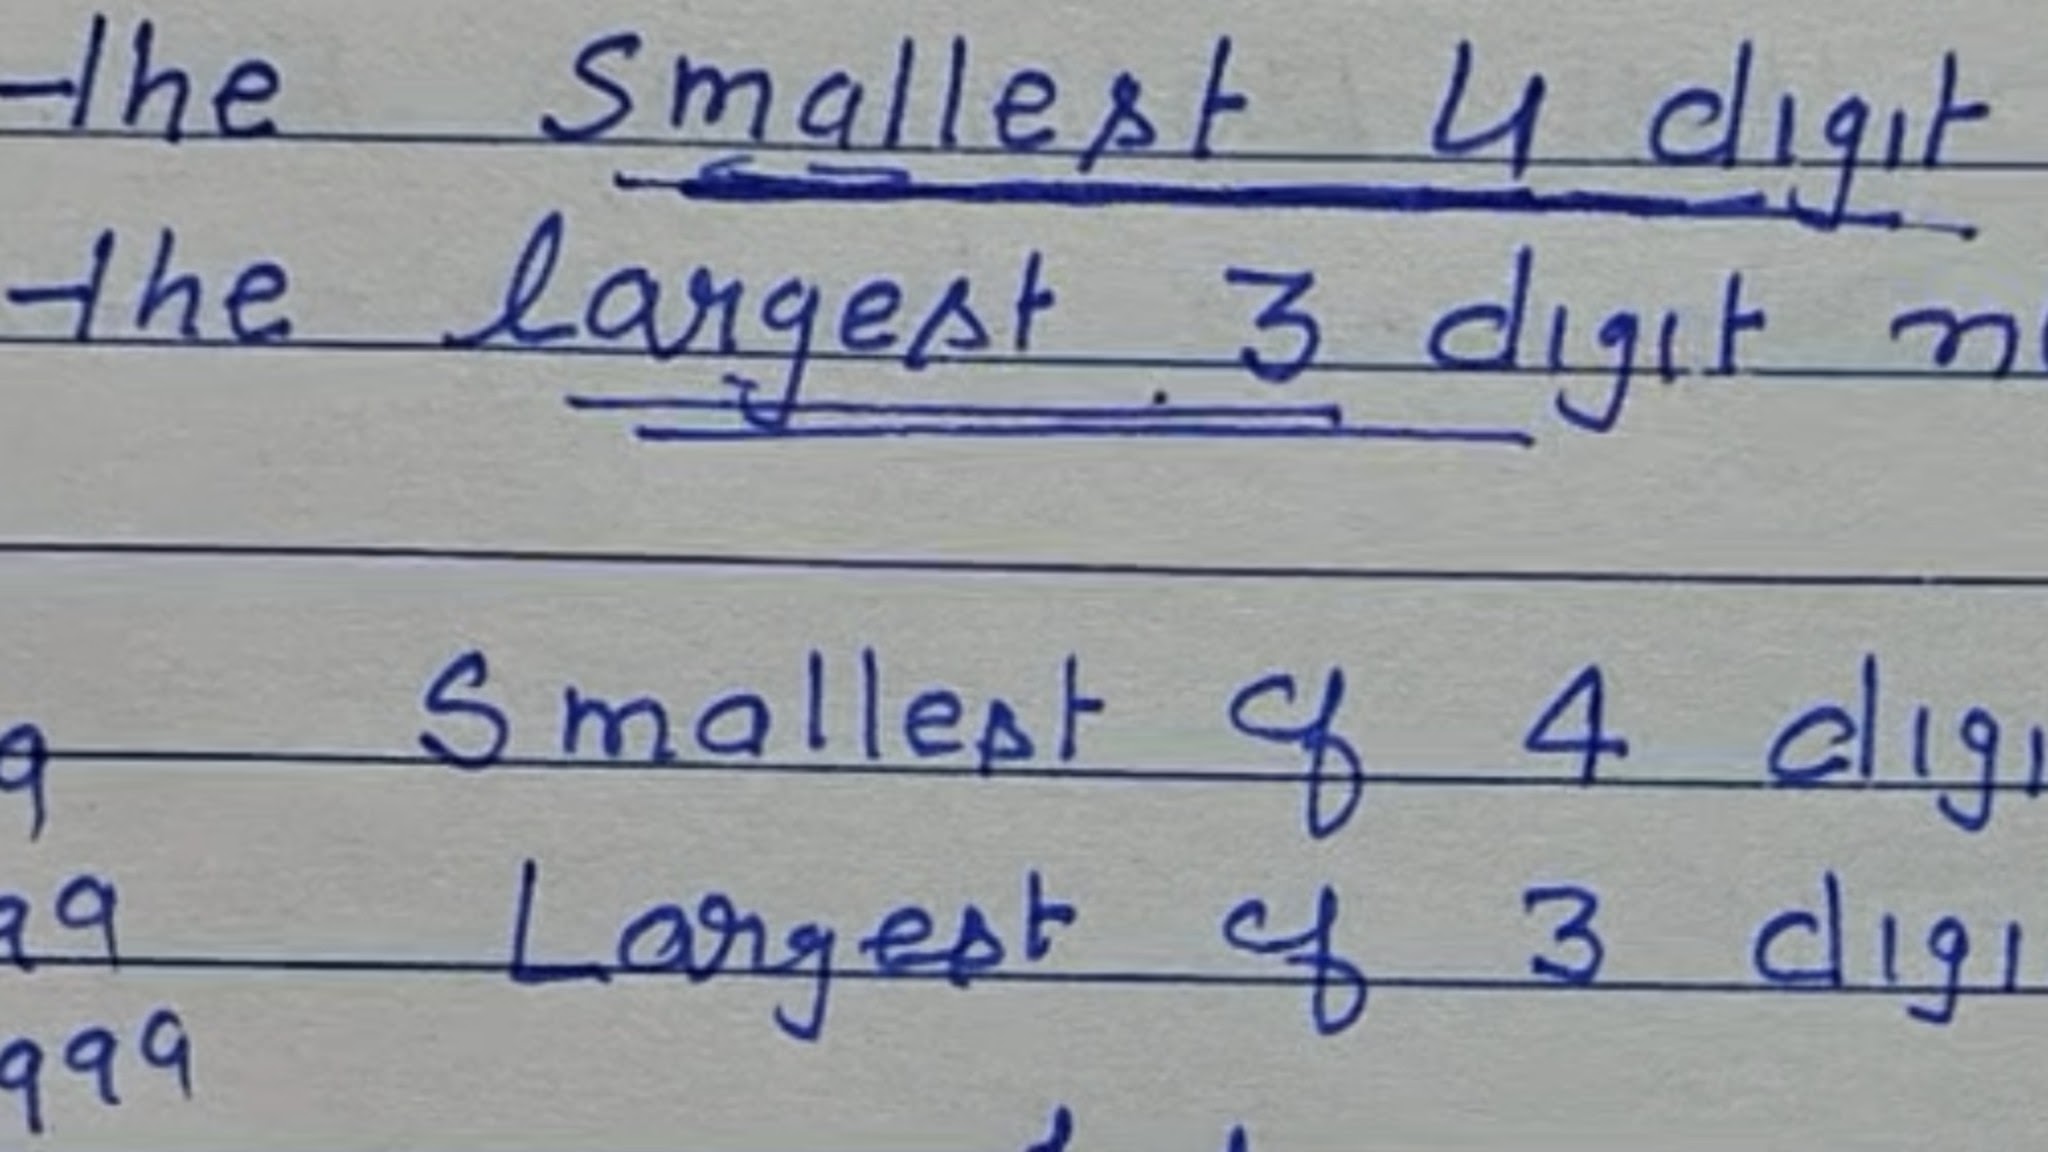 the Smallest 4 digit
the largest 3 digit
9 Smallest of 4 digi
99 Largest of 3 digi
999